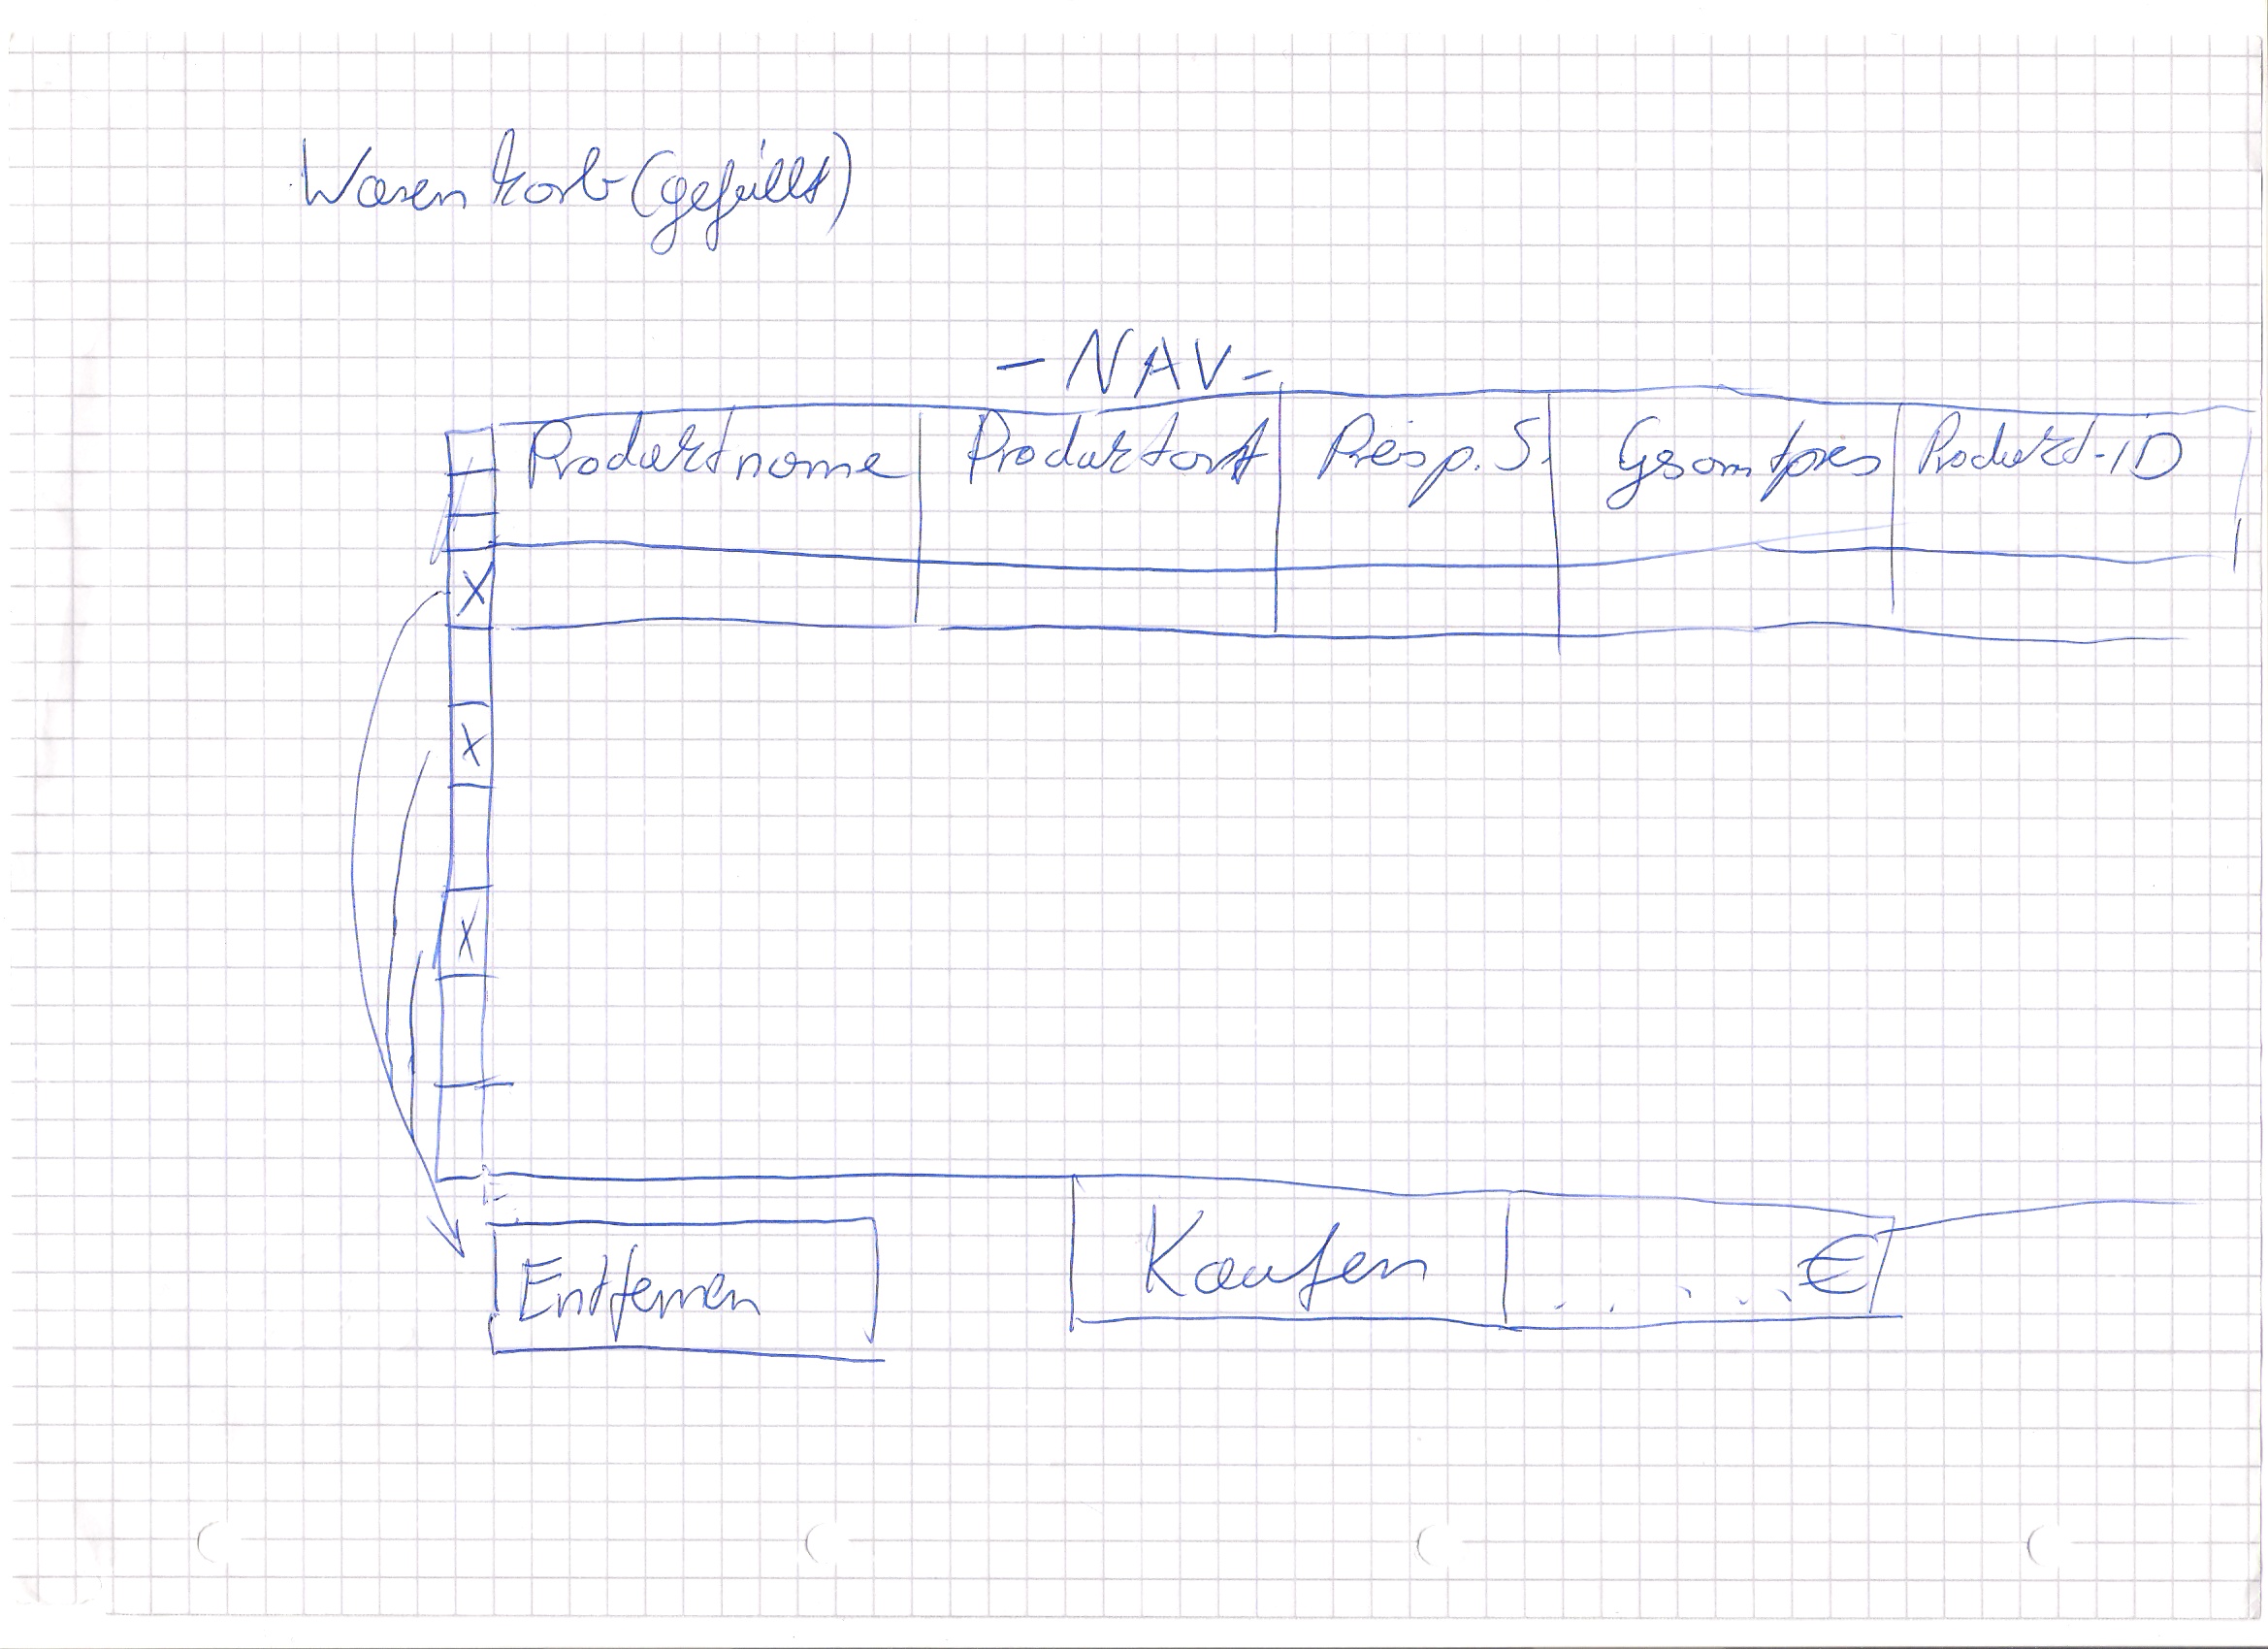 Warenkorb (gefüllt)
- NAV -
Produktname Produktart Preis p. S. Gesamtpreis Produkt-ID
X
X
X
Entfernen Kaufen . . . . . €